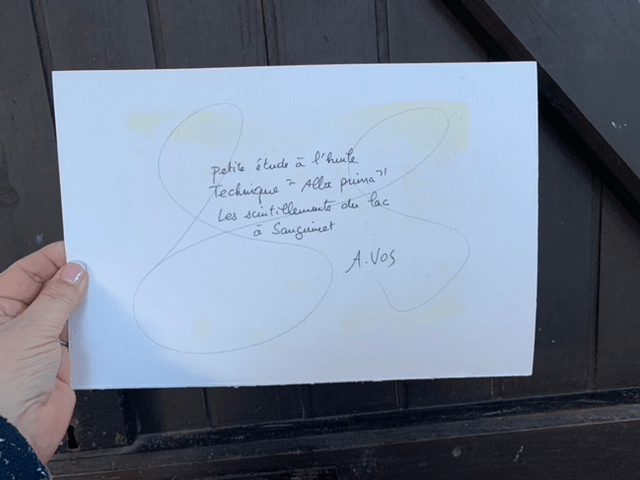 petite étude à l'huile
Technique "Alla prima"
Les scintillements du lac
à Sanguinet
A. VOS